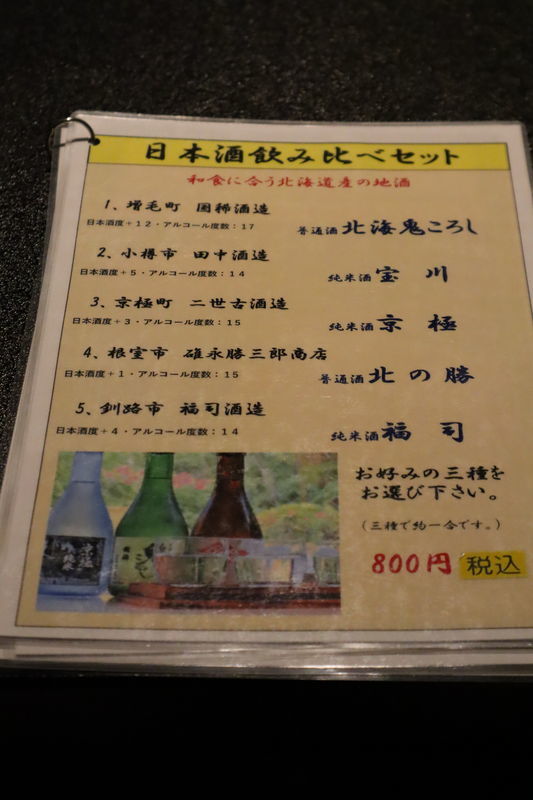 日本酒飲み比べセット
和食に合う北海道産の地酒
1、増毛町 国稀酒造
日本酒度+12・アルコール度数:17
普通酒 北海鬼ころし
2、小樽市 田中酒造
日本酒度+5・アルコール度数:14
純米酒 宝川
3、京極町 二世古酒造
日本酒度+3・アルコール度数:15
純米酒 京極
4、根室市 碓氷勝三郎商店
日本酒度+1・アルコール度数:15
普通酒 北の勝
5、釧路市 福司酒造
日本酒度+4・アルコール度数:14
純米酒 福司
お好みの三種を
お選び下さい。
(三種で約一合です。)
800円 税込